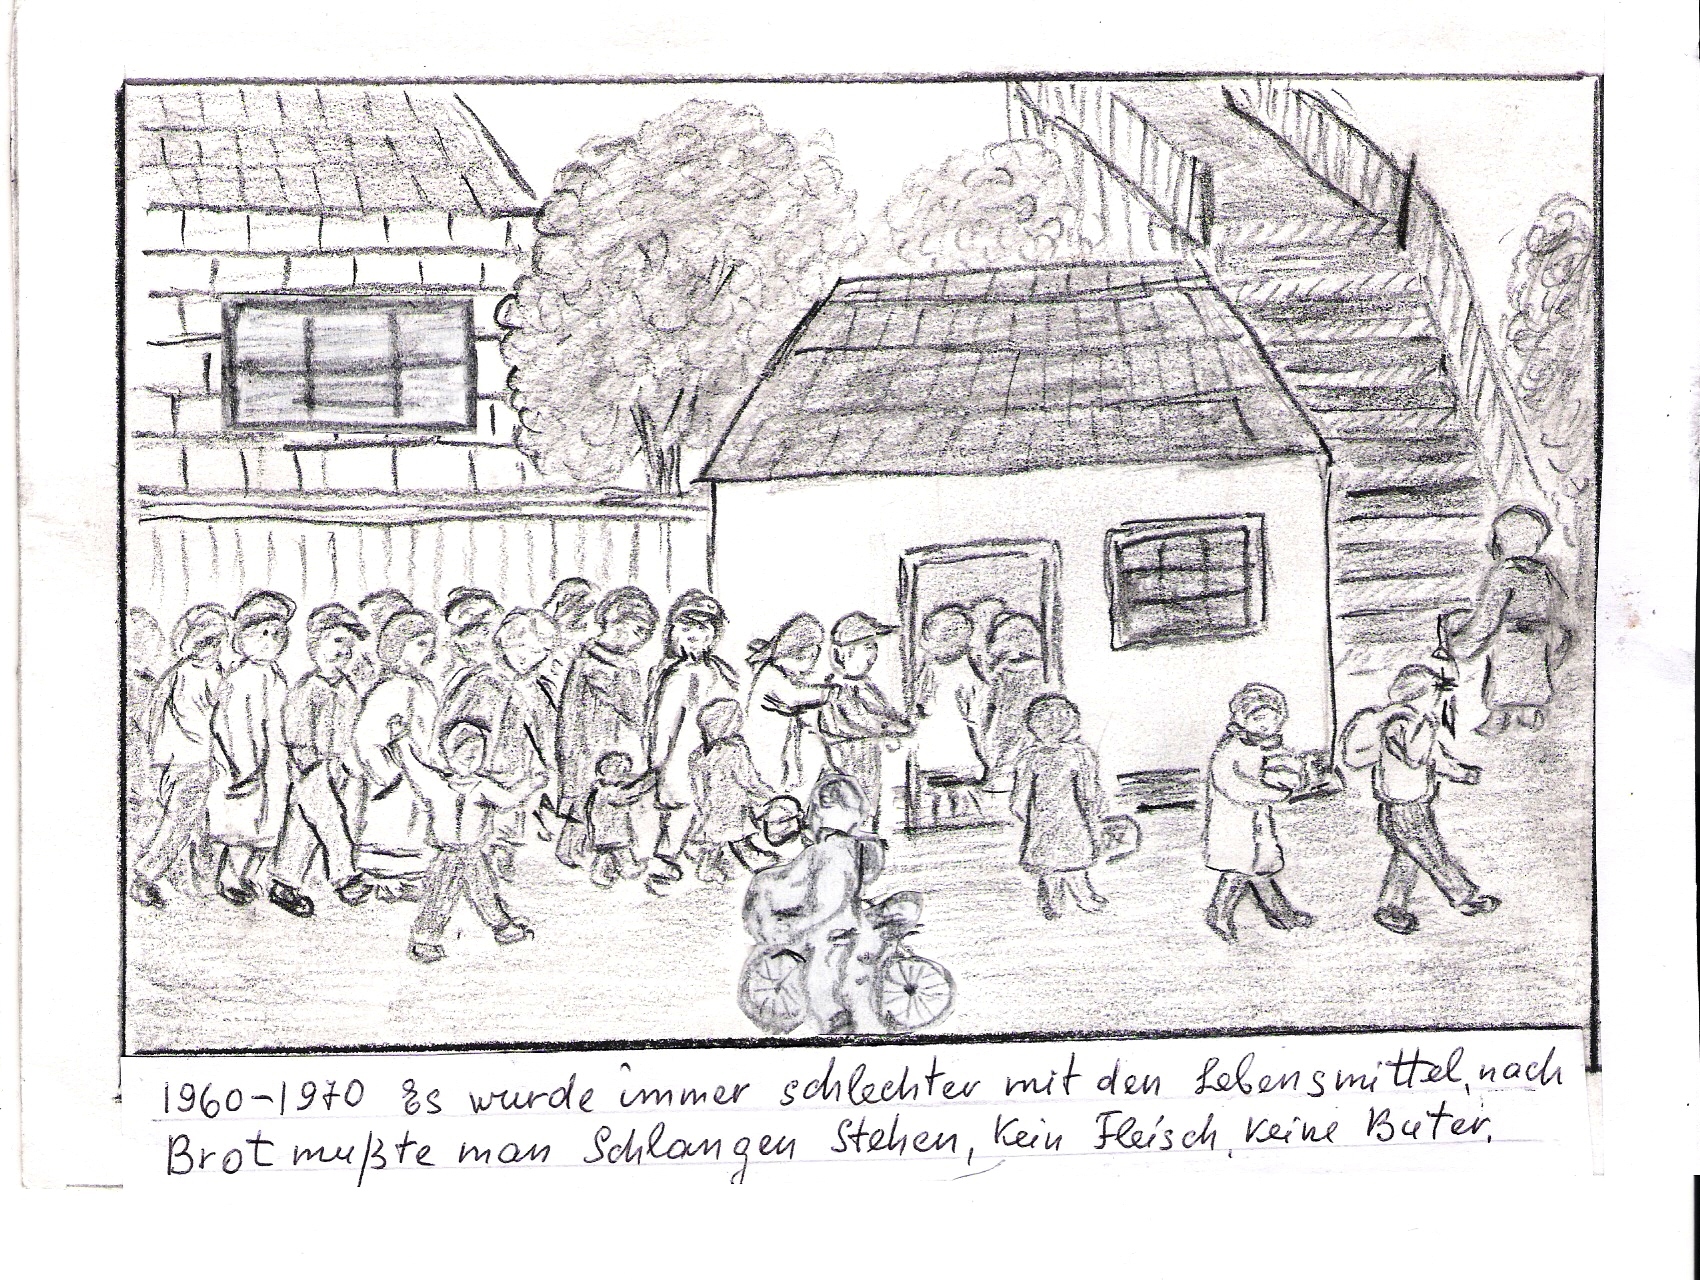 1960-1970 Es wurde immer schlechter mit den Lebensmittel, nach
Brot mußte man Schlangen Stehen, Kein Fleisch, Keine Buter.